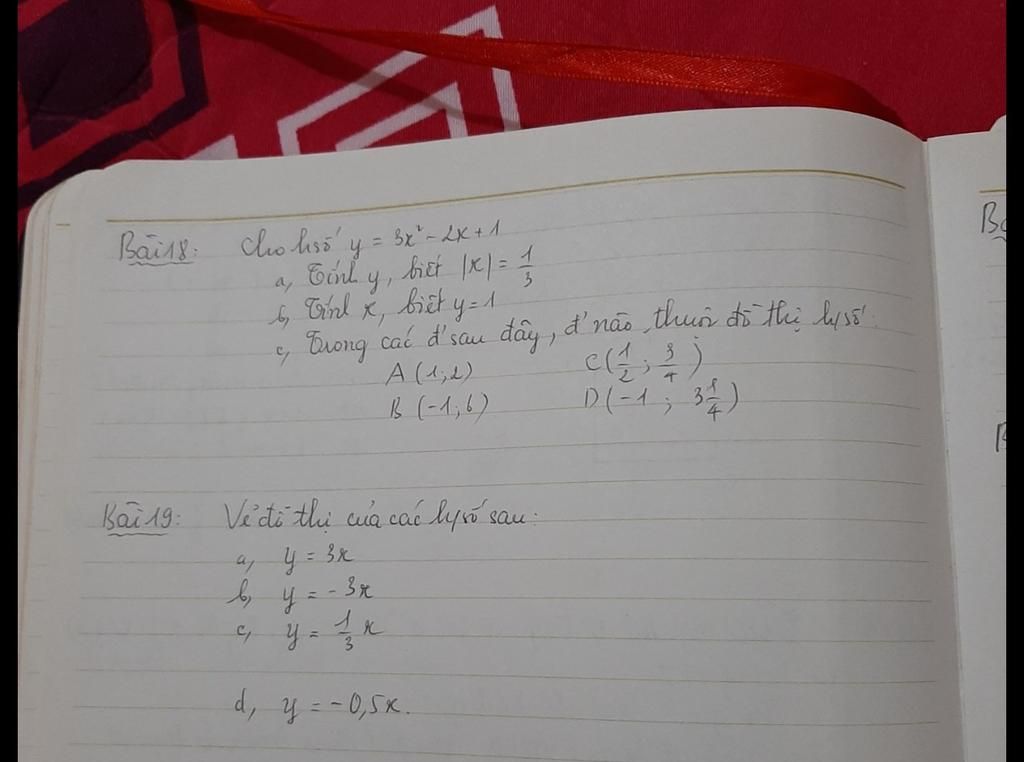 Bài 18: Cho hsố y = 3x² - 2x + 1
a, Tính y, biết |x| = 1/3
b, Tính x, biết y = 1
c, Trong các đ' sau đây, đ' nào thuộc đồ thị h/số:
A (1; 2) C (1/2; 3/4)
B (-1; 6) D (-1; 3 1/4)
Bài 19: Vẽ đồ thị của các h/số sau:
a, y = 3x
b, y = - 3x
c, y = 1/3 x
d, y = - 0,5x.